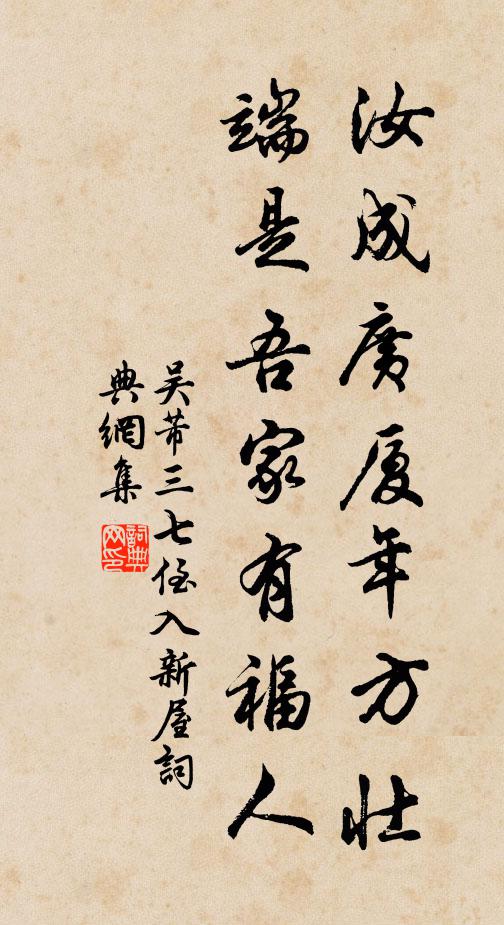 汝成廣厦年方壯
端是吾家有福人
吴芾三七侄入新屋詞
典網集
詞典
网印